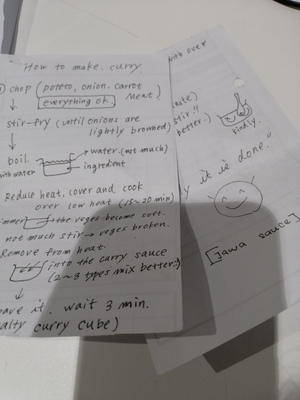 How to make curry
chop (poteto, onion. carrot
everything ok. Meat)
stir-fry (until onions are
lightly browned)
boil. water (not much)
with water ingredient
Redule heat. cover and cook
over low heat (15~20 min)
immer the veges become soft.
not much stir → veges broken.
Remove from heat.
into the curry sauce
(2~3 types mix better!)
eave it. wait 3 min.
alty curry cube)
with over
stir!!
better.)
kindly.
it is done."
[Jawa sauce]